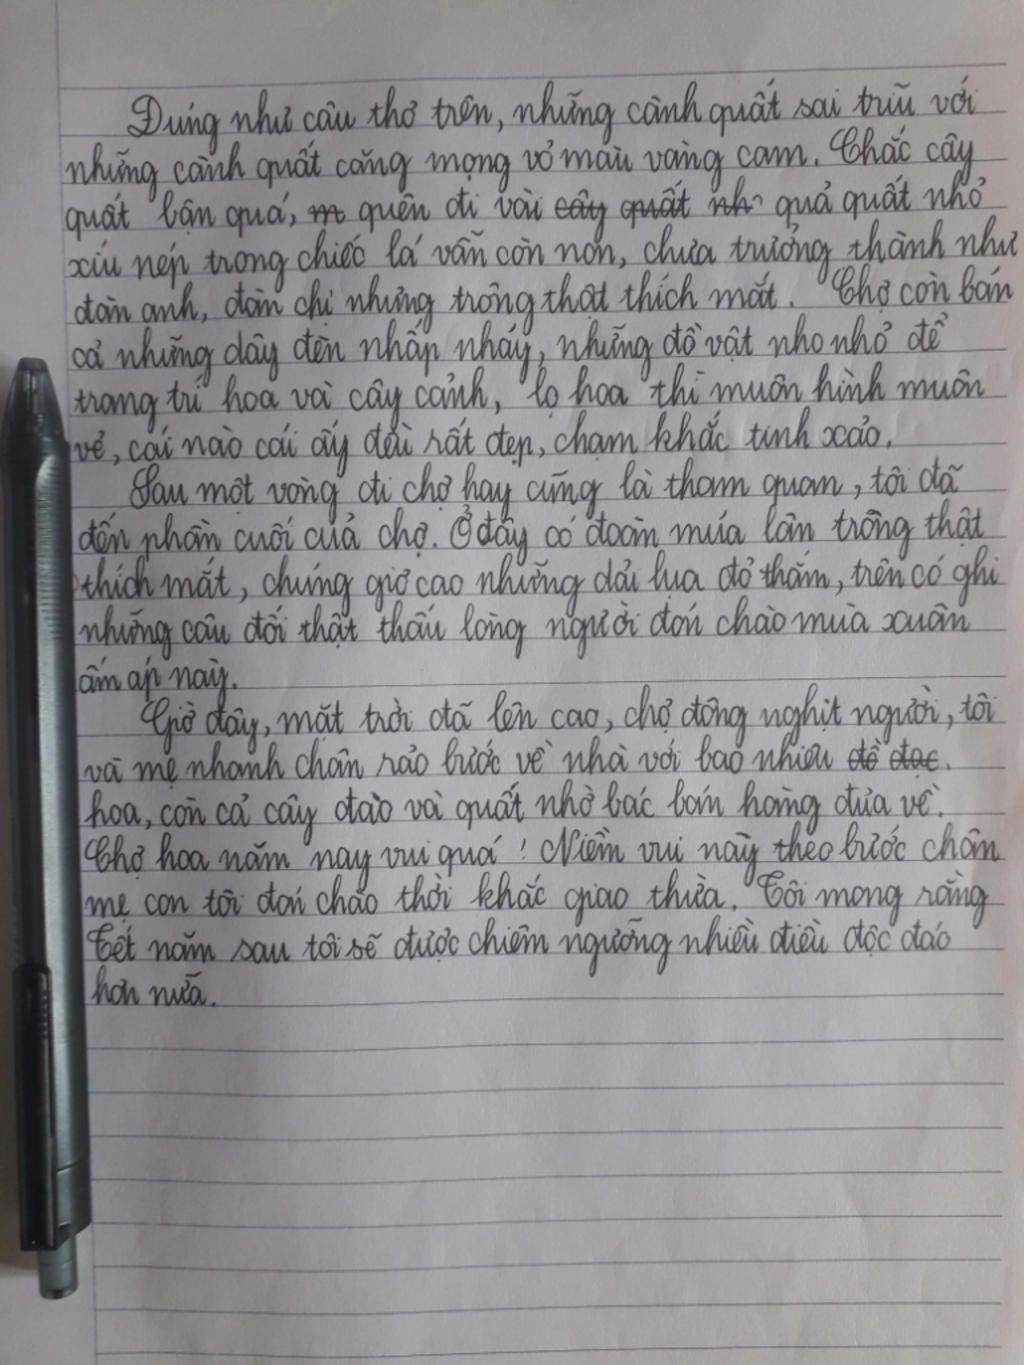 Đúng như câu thơ trên, những cành quất sai trĩu với
những cành quất căng mọng vỏ màu vàng cam. Chắc cây
quất bận quá, m quên đi vài cây quất nh quả quất nhỏ
xíu nép trong chiếc lá vẫn còn non, chưa trưởng thành như
đàn anh, đàn chị nhưng trông thật thích mắt. Chợ còn bán
cả những dây đèn nhấp nháy, những đồ vật nho nhỏ để
trang trí hoa và cây cảnh, lọ hoa thì muôn hình muôn
vẻ, cái nào cái ấy đều rất đẹp, chạm khắc tinh xảo.
Sau một vòng đi chợ hay cũng là tham quan, tôi đã
đến phần cuối của chợ. Ở đây có đoàn múa lân trông thật
thích mắt, chúng giơ cao những dải lụa đỏ thắm, trên có ghi
những câu đối thật thấu lòng người đón chào mùa xuân
ấm áp này.
Giờ đây, mặt trời đã lên cao, chợ đông nghịt người, tôi
và mẹ nhanh chân rảo bước về nhà với bao nhiêu đồ đạc.
hoa, còn cả cây đào và quất nhờ bác bán hàng đưa về.
Chợ hoa năm nay vui quá! Niềm vui này theo bước chân
mẹ con tôi đón chào thời khắc giao thừa. Tôi mong rằng
Tết năm sau tôi sẽ được chiêm ngưỡng nhiều điều độc đáo
hơn nữa.